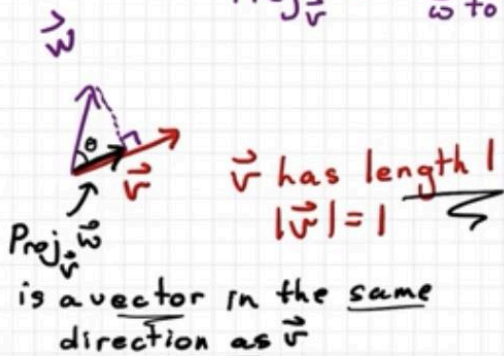 w⃗ to
w⃗
θ
v⃗
v⃗ has length 1
|v⃗| = 1
Proj_v⃗ w⃗
is a vector in the same
direction as v⃗